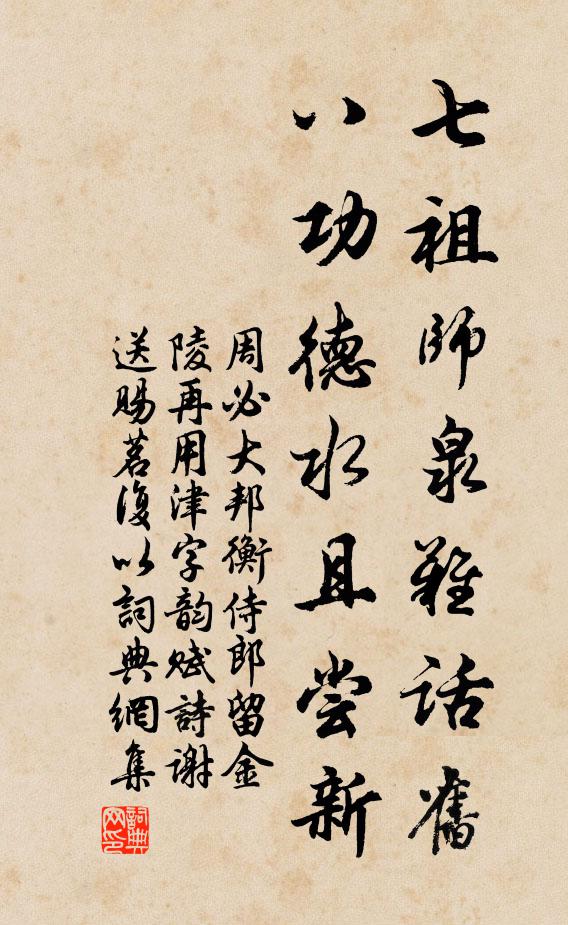 七祖師泉難話舊
八功德水且尝新
周必大邦衡侍郎留金
陵再用津字韵赋詩谢
送賜茗復以詞典網集
詞典網印